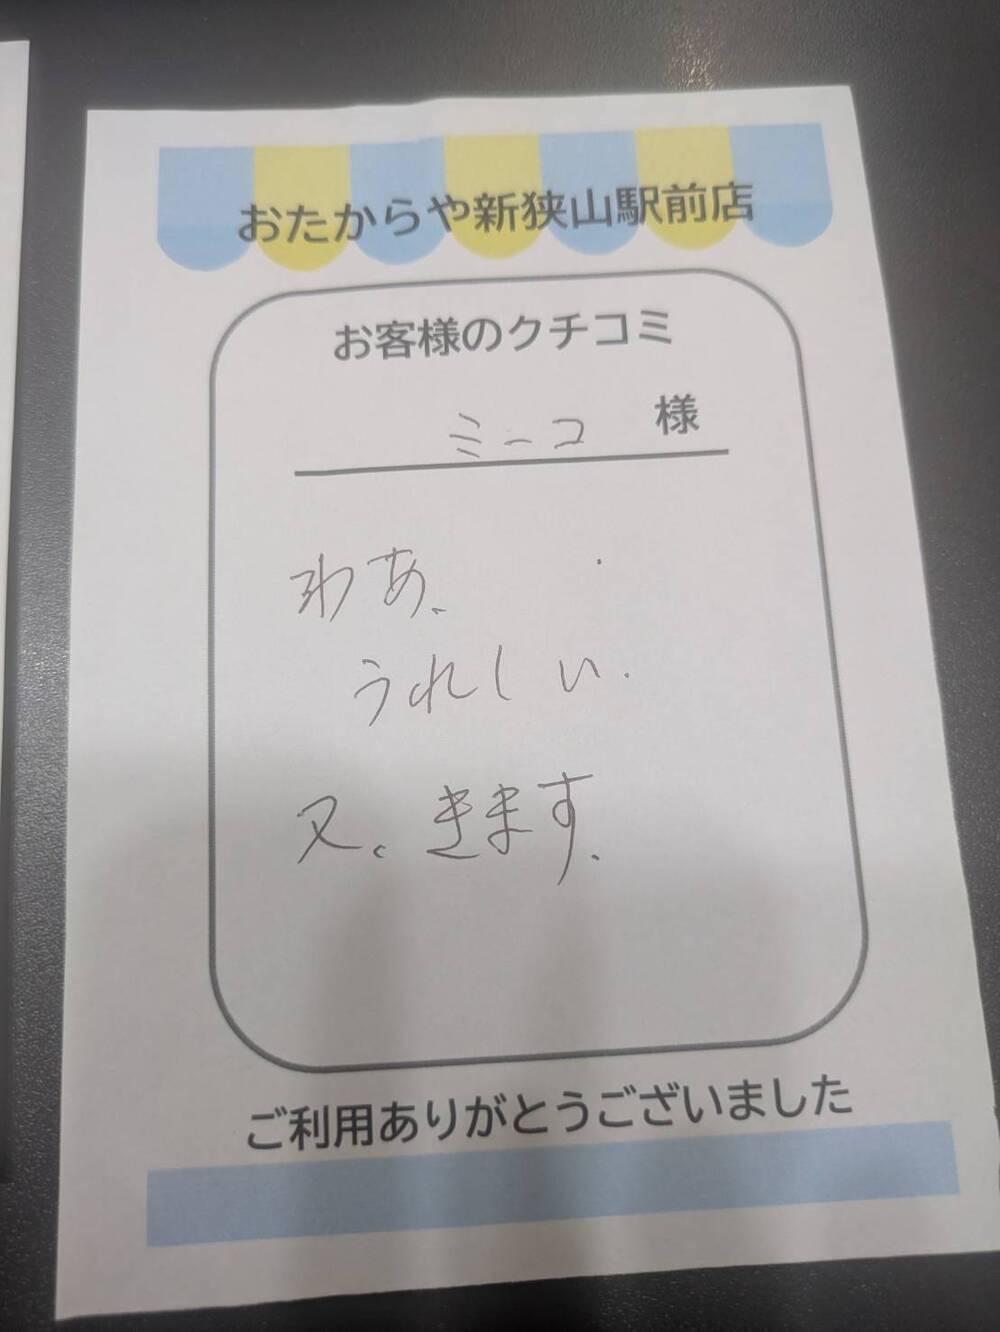 おたからや新狭山駅前店
お客様のクチコミ
ミーコ 様
わあ、
うれしい.
又、きます.
ご利用ありがとうございました